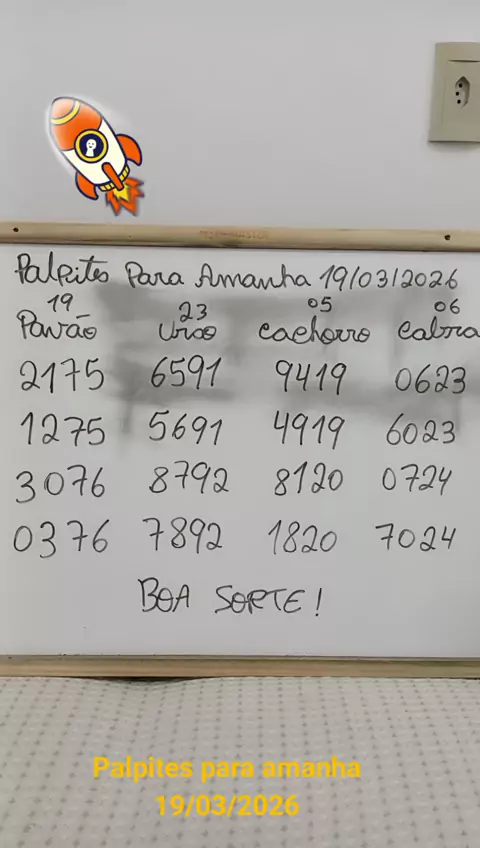 Palpites Para Amanha 19/03/2026
19 23 05 06
Pavão Urso Cachorro Cabra
2175 6591 9419 0623
1275 5691 4919 6023
3076 8792 8120 0724
0376 7892 1820 7024
BOA SORTE!
Palpites para amanha
19/03/2026